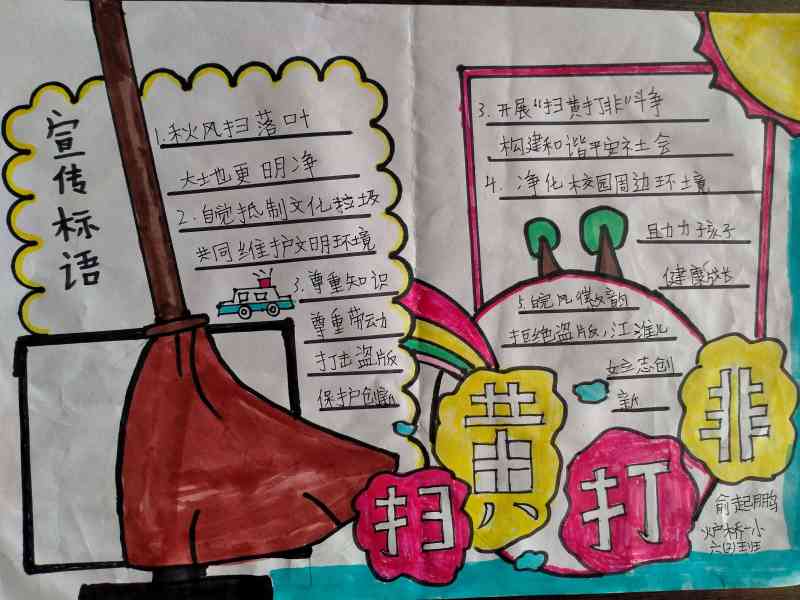 宣传标语
1.秋风扫落叶
大地更明净
2.自觉抵制文化垃圾
共同维护文明环境
3.尊重知识
尊重劳动
打击盗版
保护创新
3.开展"扫黄打非"斗争
构建和谐平安社会
4.净化校园周边环境
助力孩子
健康成长
5.皖风徽韵
拒绝盗版,江淮儿
女志创
新
扫黄打非
俞起鹏
桥一小
六(2)班